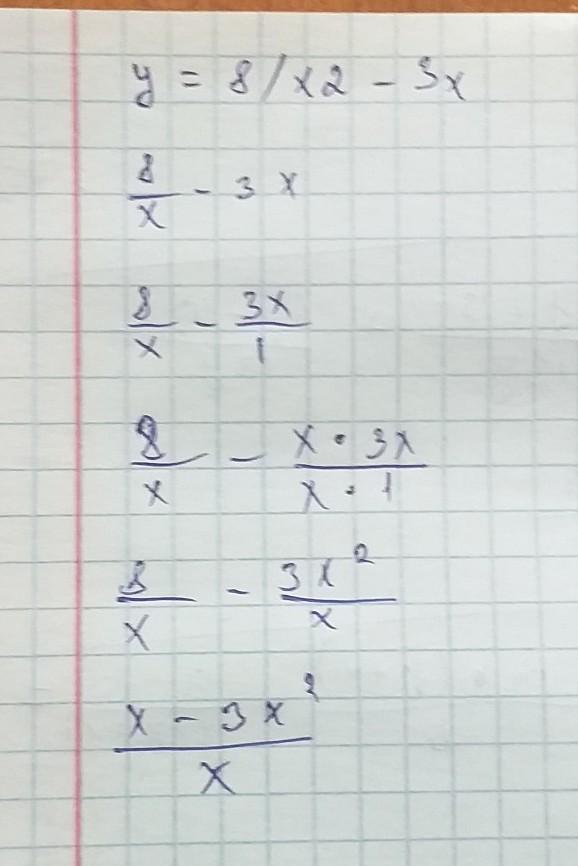 y = 8/x2 - 3x
8/x - 3x
8/x - 3x/1
8/x - x·3x/x·1
8/x - 3x²/x
x - 3x²/x